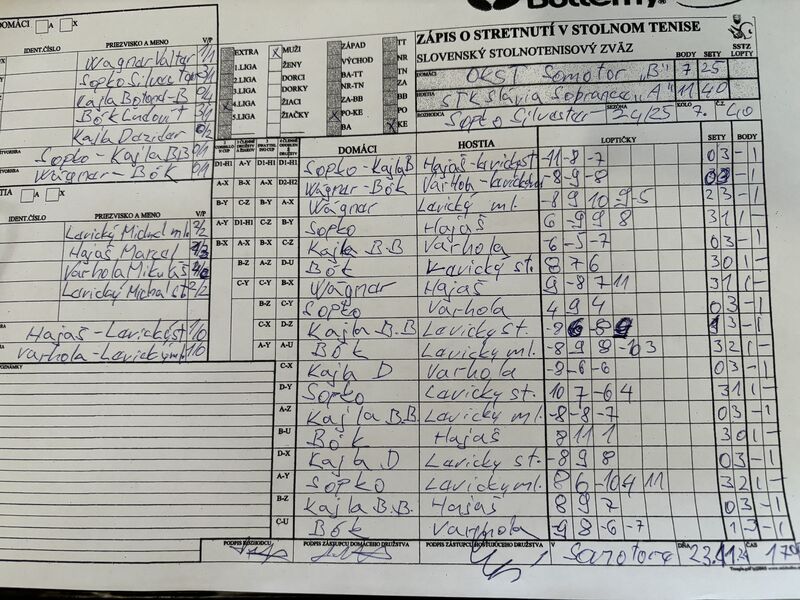 Butterfly
DOMÁCI A X
IDENT.ČÍSLO PRIEZVISKO A MENO V/P
Wagnar Valter 1/1
Sopko Silvester 3/1
Kajla Botond-B 0/4
Bók Ľudovít 3/1
Kajla Dezider 0/2
Sopko - Kajla B.B 0/1
Wagnar - Bók 0/1
A X
IDENT.ČÍSLO PRIEZVISKO A MENO V/P
Lavický Michal ml. 2/2
Hajaš Marcel
Varhola Mikuláš
Lavický Michal st 2/2
Hajaš - Lavický st 1/0
Varhola - Lavický ml. 1/0
POZNÁMKY
EXTRA X MUŽI ZÁPAD TT
1.LIGA ŽENY VÝCHOD NR
2.LIGA DORCI BA-TT TN
3.LIGA DORKY NR-TN ZA
4.LIGA ŽIACI ZA-BB BB
5.LIGA ŽIAČKY PO-KE PO
BA KE
ZÁPIS O STRETNUTÍ V STOLNOM TENISE
SLOVENSKÝ STOLNOTENISOVÝ ZVÄZ BODY SETY SSTZ LOPTY
DOMÁCI OKST Somotor "B" 7 25
HOSTIA STK Slávia "A" 11 40
ROZHODCA Sopko Silvester SEZÓNA 24/25 KOLO 7. Č.
DOMÁCI HOSTIA LOPTIČKY SETY BODY
D1-H1 A-Y D1-H1 D1-H1 Sopko - Kajla B Hajaš - Lavický st -11 -8 -7 0 3 - 1
A-X B-X A-X D2-H2 Wagnar - Bók Varhola - -8 -9 -8 0 3 - 1
B-Y C-Z B-Y A-X Wagnar Lavický ml. -8 9 10 9 -5 2 3 - 1
A-Y D1-H1 C-Z B-Y Sopko Hajaš 6 -9 9 8 3 1 1 -
B-X A-X B-X C-Z Kajla B.B Varhola -6 -5 -7 0 3 - 1
B-Z A-Z D-U Bók Lavický st. 8 7 6 3 0 1 -
C-Y C-Y B-X Wagnar Hajaš 9 -8 7 11 3 1 1 -
B-Z C-Y Sopko Varhola 4 9 4 0 3 - 1
C-X D-Z Kajla B.B Lavický st. 3 - 1
A-Y A-U Bók Lavický ml. -8 9 9 -10 3 3 2 1 -
C-X Kajla D Varhola -9 -6 -6 0 3 - 1
D-Y Sopko Lavický st. 10 7 -6 4 3 1 1 -
A-Z Kajla B.B. Lavický ml. -8 -8 -7 0 3 - 1
B-U Bók Hajaš 8 11 1 3 0 1 -
D-X Kajla D Lavický st. -8 9 8 0 3 - 1
A-Y Sopko Lavický ml. 8 6 -10 4 11 3 2 1 -
B-Z Kajla B.B. Hajaš 8 9 7 0 3 - 1
C-U Bók Varhola -9 8 -6 -7 1 3 - 1
PODPIS ROZHODCU PODPIS ZÁSTUPCU DOMÁCEHO DRUŽSTVA PODPIS ZÁSTUPCU HOSŤUJÚCEHO DRUŽSTVA V DŇA 23.11.24 ČAS